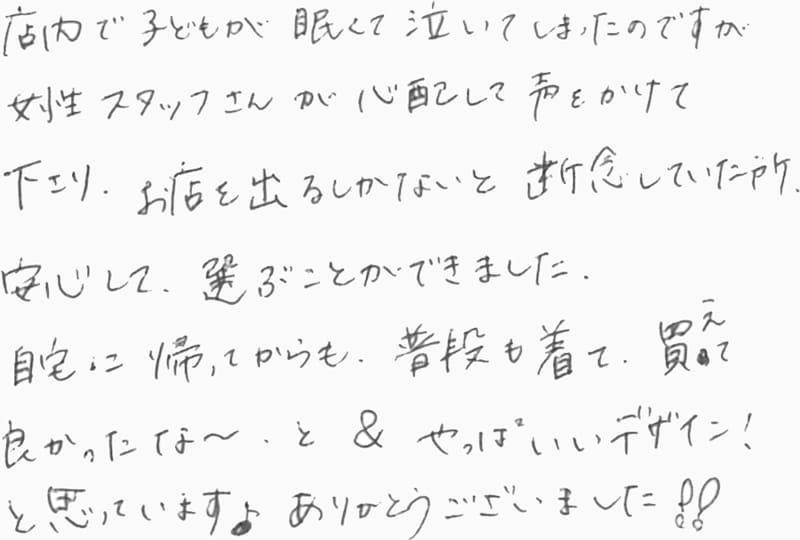 店内で子どもが眠くて泣いてしまったのですが
女性スタッフさんが心配して声をかけて
下さり、お店を出るしかないと断念していた所、
安心して、選ぶことができました。
自宅に帰ってからも、普段も着て、買えて
良かったな〜、と & やっぱいいデザイン！
と思っています♪ ありがとうございました!!